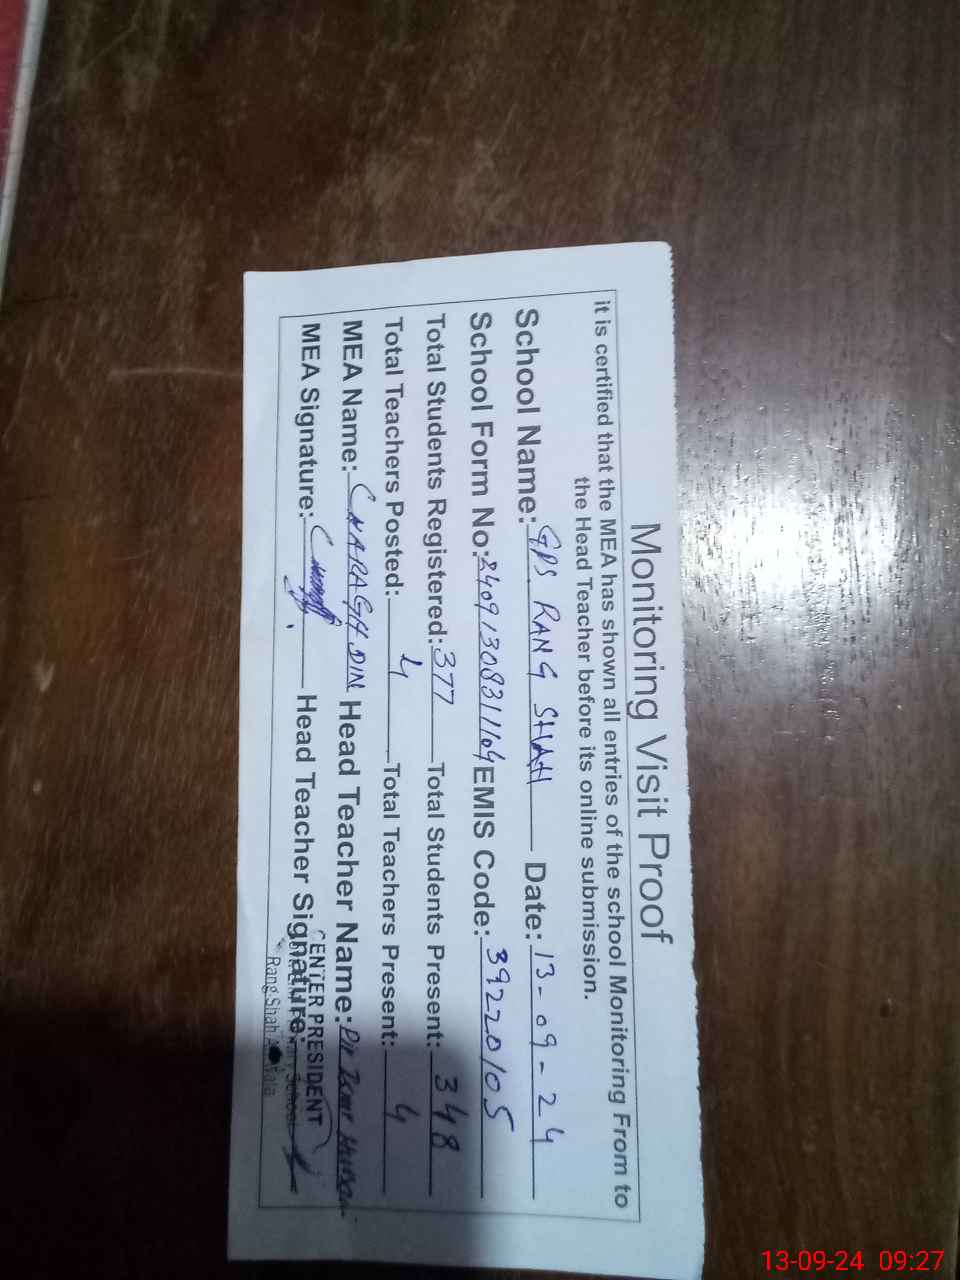 Monitoring Visit Proof
it is certified that the MEA has shown all entries of the school Monitoring From to
the Head Teacher before its online submission.
School Name: GPS RANG SHAH Date: 13-09-24
School Form No: 2409130831104 EMIS Code: 39220105
Total Students Registered: 377 Total Students Present: 348
Total Teachers Posted: 4 Total Teachers Present: 4
MEA Name: CHARAGH DIN Head Teacher Name:
MEA Signature: Head Teacher Signature:
CENTER PRESIDENT
School
Rang Shah
13-09-24 09:27